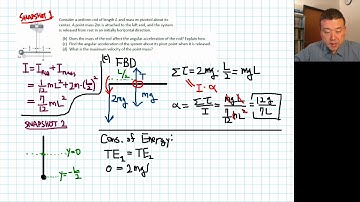 SNAPSHOT 1
Consider a uniform rod of length L and mass m pivoted about its
center. A point mass 2m is attached to the left end, and the system
is released from rest in an initially horizontal direction.
(b) Does the mass of the rod affect the angular acceleration of the rod? Explain how.
(c) Find the angular acceleration of the system about its pivot point when it is released.
(d) What is the maximum velocity of the point mass?
I = I_rod + I_mass
= 1/12 mL² + 2m·(L/2)²
= 7/12 mL²
(c) FBD
L/2
2mg
mg
Στ = 2mg · L/2 = mgL
= I·α
α = Στ/I = mgL / (7/12 mL²) = 12g/7L
SNAPSHOT 2
y=0
y=-L/2
Cons. of Energy:
TE₁ = TE₂
0 = 2mg